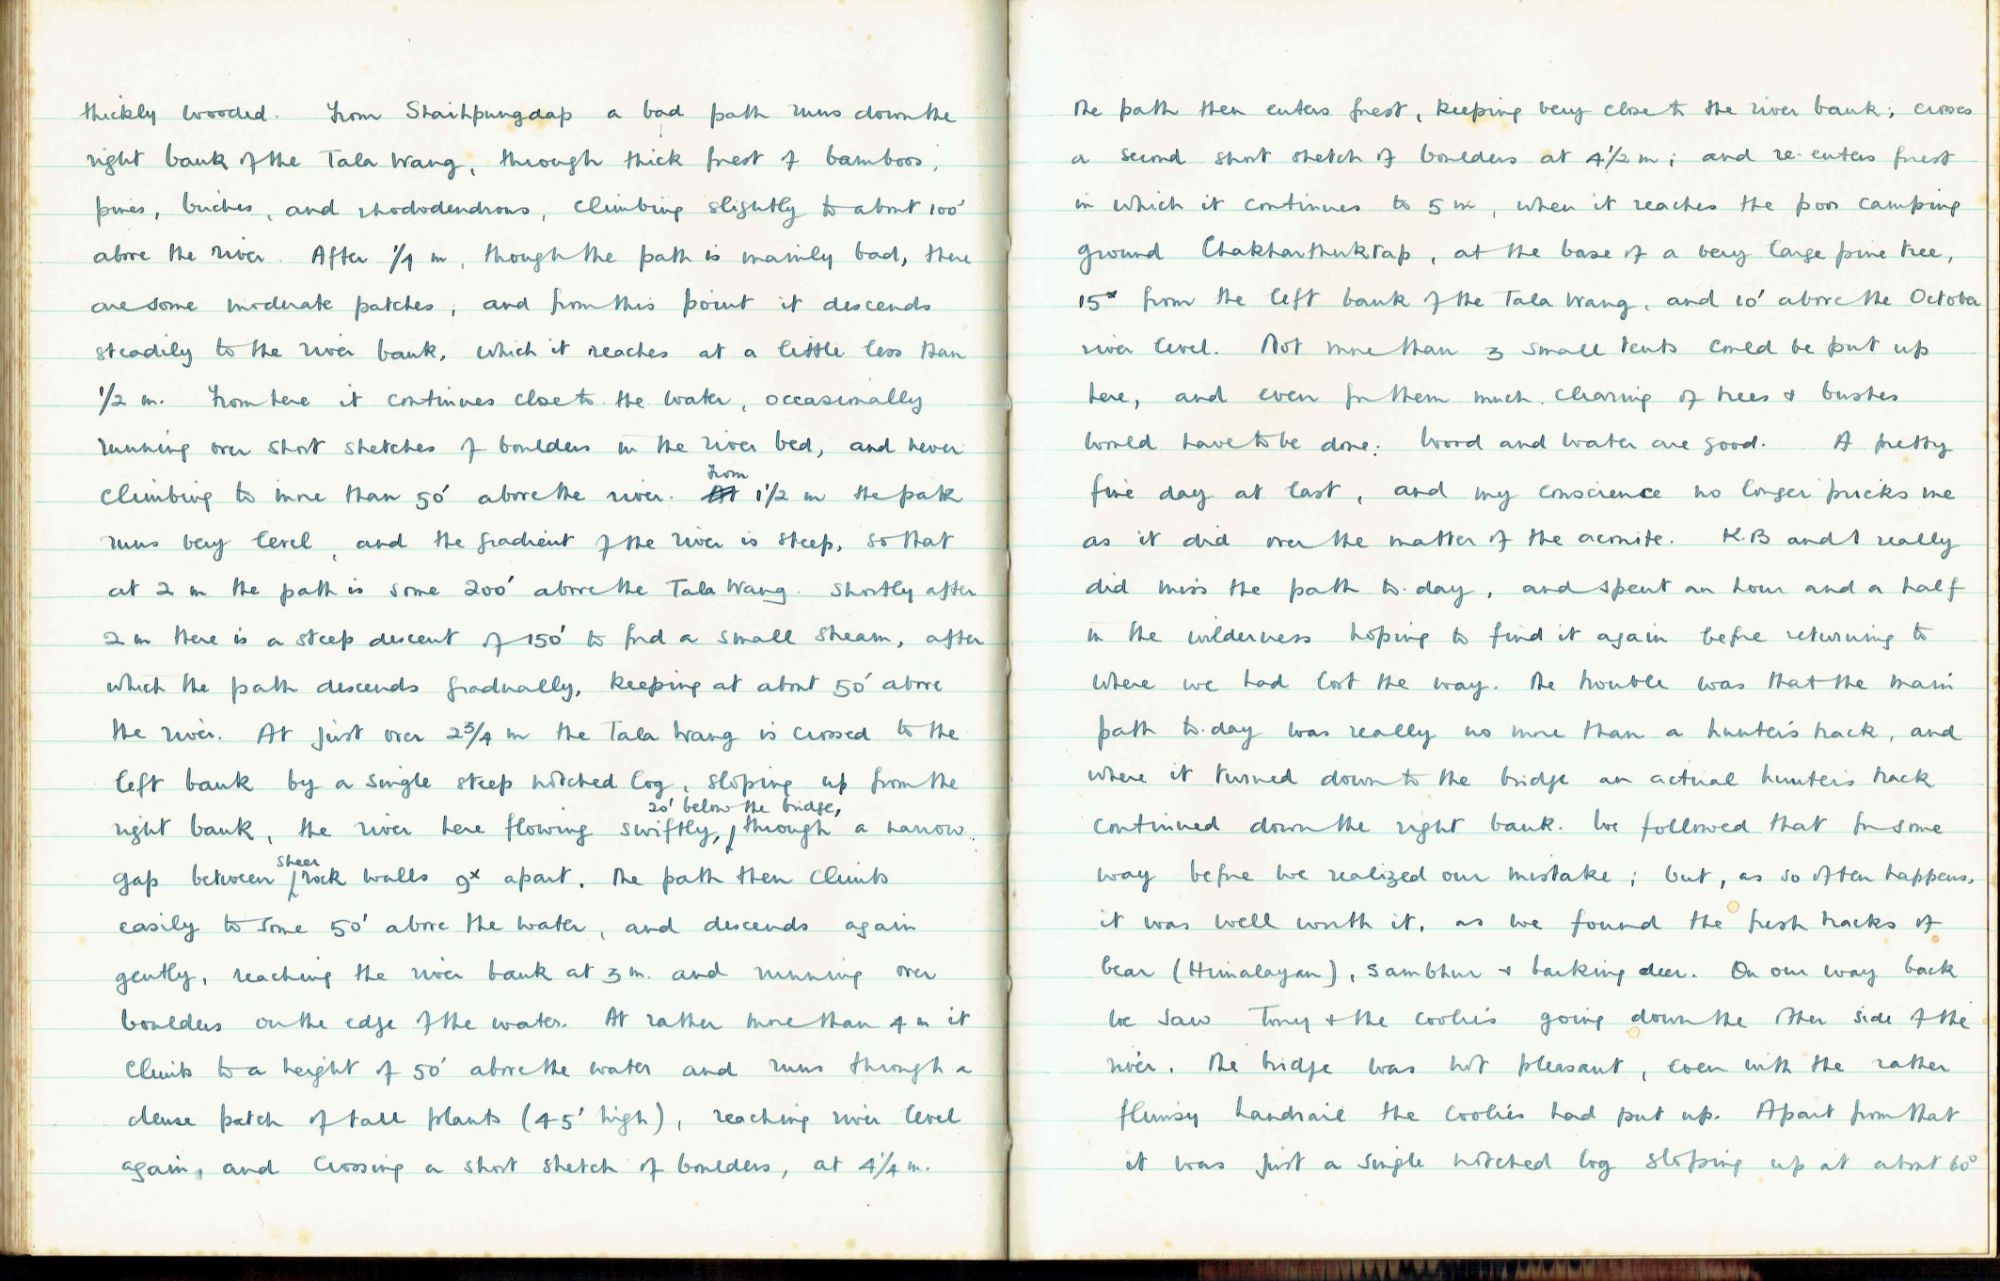 thickly wooded. From Shaihpungdap a bad path runs down the
right bank of the Tala Wang, through thick forest of bamboos,
pines, birches, and rhododendrons, climbing slightly to about 100'
above the river. After 1/4 m, though the path is mainly bad, there
are some moderate patches, and from this point it descends
steadily to the river bank, which it reaches at a little less than
1/2 m. From here it continues close to the water, occasionally
running over short stretches of boulders in the river bed, and never
climbing to more than 50' above the river. From 1 1/2 m the path
runs very level, and the gradient of the river is steep, so that
at 2 m the path is some 200' above the Tala Wang. Shortly after
2 m there is a steep descent of 150' to ford a small stream, after
which the path descends gradually, keeping at about 50' above
the river. At just over 2 3/4 m the Tala Wang is crossed to the
left bank by a single steep notched log, sloping up from the
right bank, the river here flowing swiftly, 20' below the bridge, through a narrow
gap between sheer rock walls 9x apart. The path then climbs
easily to some 50' above the water, and descends again
gently, reaching the river bank at 3 m. and running over
boulders on the edge of the water. At rather more than 4 m it
climbs to a height of 50' above the water and runs through a
dense patch of tall plants (45' high), reaching river level
again, and crossing a short stretch of boulders, at 4 1/4 m.
The path then enters forest, keeping very close to the river bank; crosses
a second short stretch of boulders at 4 1/2 m; and re-enters forest
in which it continues to 5 m, when it reaches the poor camping
ground Chakharthuktap, at the base of a very large pine tree,
15x from the left bank of the Tala Wang, and 10' above the October
river level. Not more than 3 small tents could be put up
here, and even for them much clearing of trees & bushes
would have to be done. Wood and water are good. A pretty
fine day at last, and my conscience no longer pricks me
as it did over the matter of the aconite. K.B and I really
did miss the path to-day, and spent an hour and a half
in the wilderness hoping to find it again before returning to
where we had lost the way. The trouble was that the main
path to-day was really no more than a hunter's track, and
where it turned down to the bridge an actual hunter's track
continued down the right bank. We followed that for some
way before we realized our mistake; but, as so often happens,
it was well worth it, as we found the fresh tracks of
bear (Himalayan), sambhur & barking deer. On our way back
we saw Tony & the coolies going down the other side of the
river. The bridge was not pleasant, even with the rather
flimsy handrail the coolies had put up. Apart from that
it was just a single notched log sloping up at about 60°